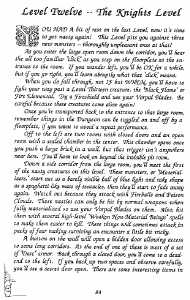 Level Twelve -- The Knights Level
YOU HAD A bit of ease on the last Level, now it's time
to get nasty again! This Level pits you against three
new monsters -- thoroughly unpleasant ones at that!
As you enter the large open room down the corridor, you'll hear
the all too familiar 'click' as you step on the floorplate at the en-
trance to the room. If you wander left, you'll be OK for a while,
but if you go right, you'll learn exactly what that 'click' means.
When you do fall through, use
fight your way past a Level Thirteen creature, the 'Black Flame' or
Fire Elemental. Try a Fireshield and use your Vorpal Blades. Be
careful because these creatures come alive again!
Once you're transported back to the entrance to that large room,
remember things in the Dungeon can be triggered on and off by a
floorplate, if you want to avoid a repeat performance.
Off to the left are four rooms with closed doors and an open
room with a sealed chamber in the center. This chamber opens once
you push a large brick in a wall, but that trigger isn't anywhere
near here. You'll have to look on beyond the invisible pit room.
Down a side corridor from the large room, you'll meet the first
of the nasty creatures on this level. These monsters, or 'Material-
izers,' start out as a barely visible ball of thin light and take shape
as a ghostlike gray mass of smoke, then they'll start to fade away
again. Watch out because they attack with Fireballs and Poison
Clouds. These nasties can only be hit by normal weapons when
fully materialized so use your Vorpal Blades on them. Also, hit
them with several high-level 'Weaken Non-Material Beings' spells
to make them easier to kill. These things will sometimes attack in
packs of four making survival an encounter a little bit tricky.
A button on the wall will open a hidden door allowing access
to some long corridors. At the end of one of these is more of a set
of 'Dexx' armor. Walk through a closed door, you'll come to a dead-
end to the left. If you back up two spaces and observe carefully,
you'll see a secret door open. There are some interesting items in
84